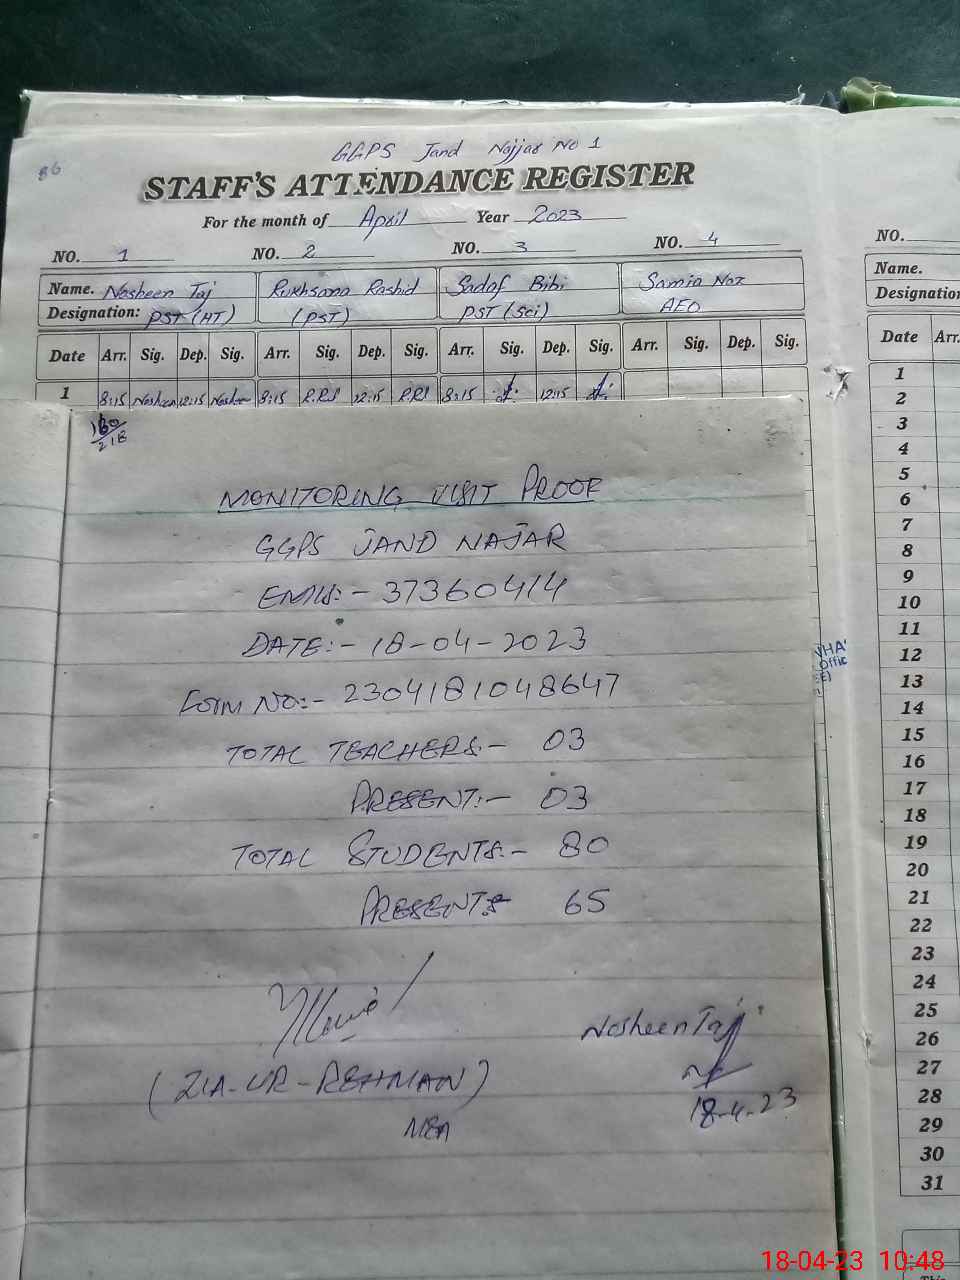 86
GGPS Jand Najjar No 1
STAFF'S ATTENDANCE REGISTER
For the month of April Year 2023
NO. 1 NO. 2 NO. 3 NO. 4
Name. Nosheen Taj Rukhsana Rashid Sadaf Bibi Samia Naz
Designation: PST (HT) (PST) PST (Sci) AEO
Date Arr. Sig. Dep. Sig. Arr. Sig. Dep. Sig. Arr. Sig. Dep. Sig. Arr. Sig. Dep. Sig.
1 8:15 Nosheen 12:15 Nosheen 8:15 R.RS 12:15 R.RS 8:15 12:15
218
MONITORING VISIT PROOF
GGPS JAND NAJAR
EMIS:- 37360414
DATE:- 18-04-2023
FORM NO:- 2304181048647
TOTAL TEACHERS:- 03
PRESENT:- 03
TOTAL STUDENTS:- 80
PRESENT:- 65
(ZIA-UR-REHMAN)
MEA
Nosheen Taj
18-4-23
NO.
Name.
Designation
Date Arr.
1
2
3
4
5
6
7
8
9
10
11
12
13
14
15
16
17
18
19
20
21
22
23
24
25
26
27
28
29
30
31
18-04-23 10:48